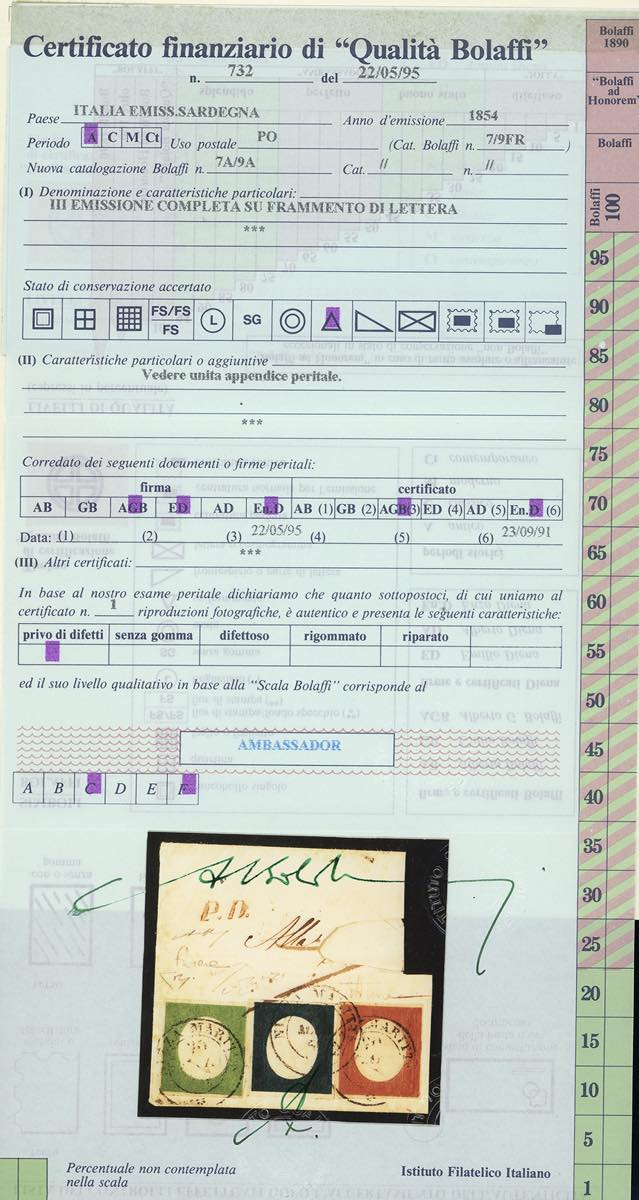 Certificato finanziario di “Qualità Bolaffi”
n. 732 del 22/05/95
Paese ITALIA EMISS.SARDEGNA Anno d'emissione 1854
Periodo A C M Ct Uso postale PO (Cat. Bolaffi n. 7/9FR )
Nuova catalogazione Bolaffi n. 7A/9A Cat. // n. //
(I) Denominazione e caratteristiche particolari:
III EMISSIONE COMPLETA SU FRAMMENTO DI LETTERA
***
Stato di conservazione accertato
FS/FS
FS
L SG
(II) Caratteristiche particolari o aggiuntive
Vedere unita appendice peritale.
***
Corredato dei seguenti documenti o firme peritali:
firma certificato
AB GB AGB ED AD En.D AB (1) GB (2) AGB(3) ED (4) AD (5) En.D (6)
Data: (1) (2) (3) 22/05/95 (4) (5) (6) 23/09/91
(III) Altri certificati: ***
In base al nostro esame peritale dichiariamo che quanto sottopostoci, di cui uniamo al
certificato n. 1 riproduzioni fotografiche, è autentico e presenta le seguenti caratteristiche:
privo di difetti senza gomma difettoso rigommato riparato
ed il suo livello qualitativo in base alla “Scala Bolaffi” corrisponde al
AMBASSADOR
A B C D E F
P.D.
Percentuale non contemplata
nella scala
Istituto Filatelico Italiano
Bolaffi
1890
“Bolaffi
ad
Honorem”
Bolaffi
Bolaffi
100
95
90
85
80
75
70
65
60
55
50
45
40
35
30
25
20
15
10
5
1